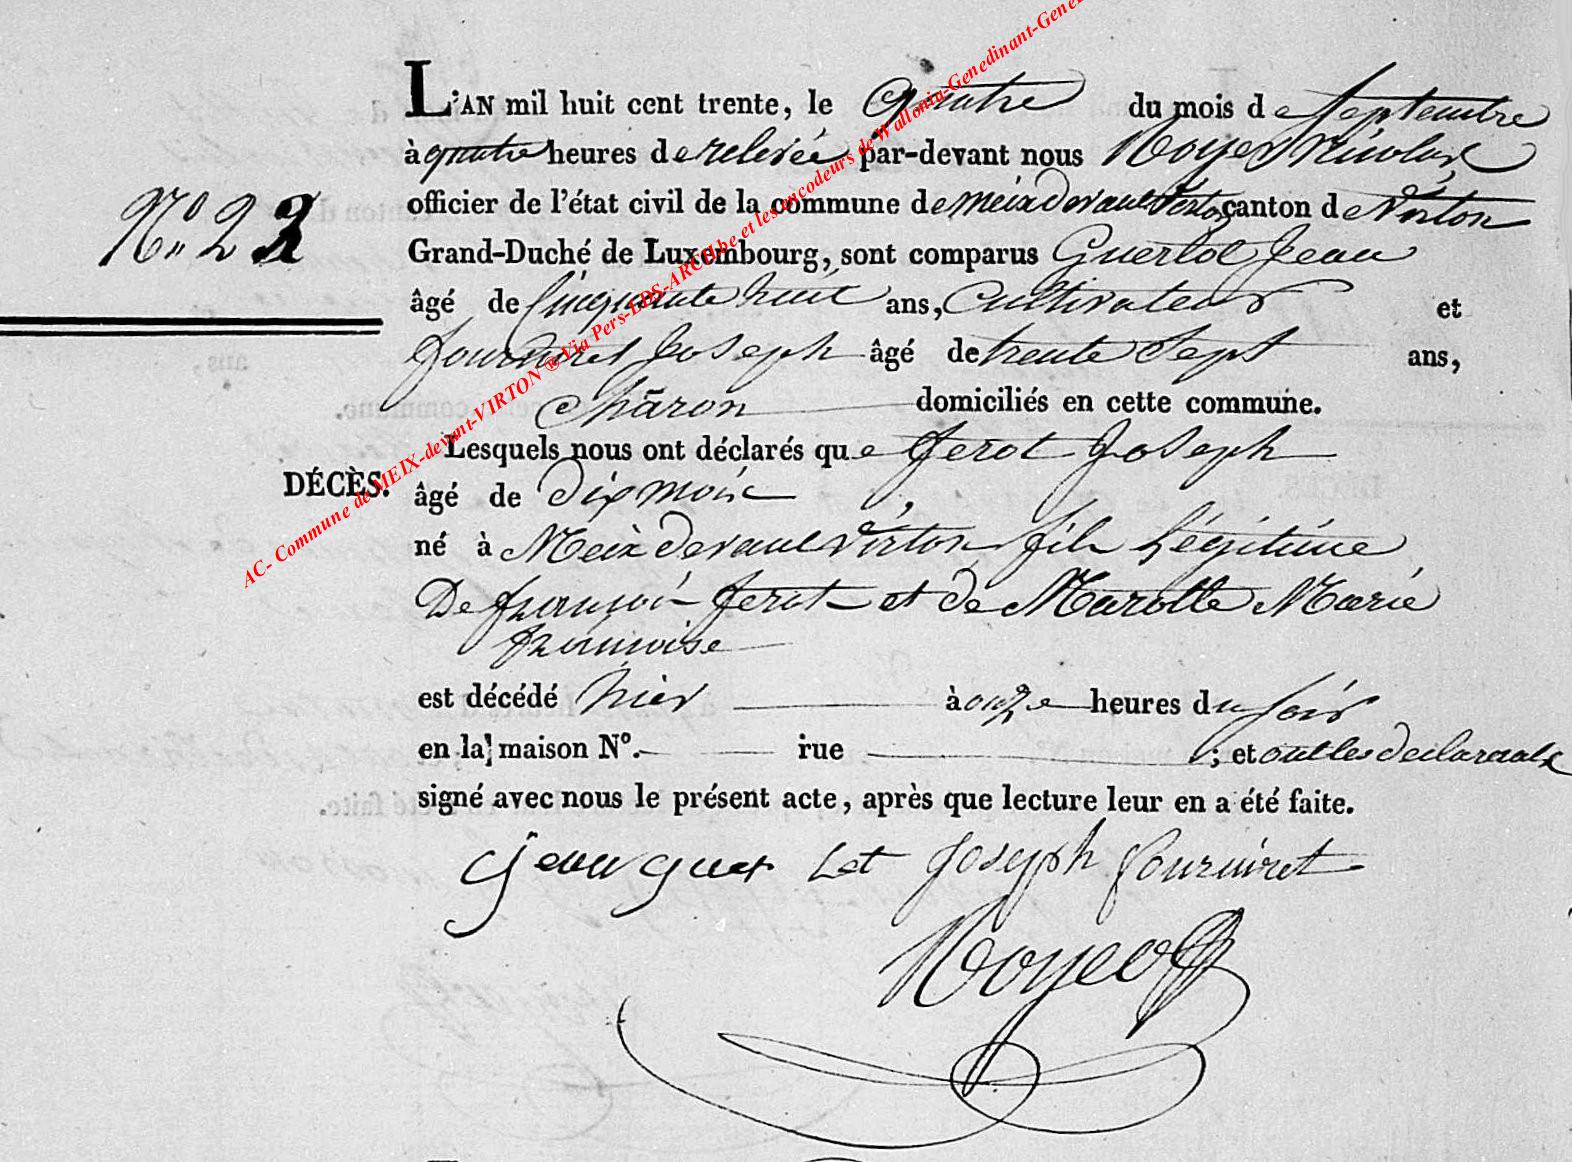 L'AN mil huit cent trente, le quatre du mois de septembre
à quatre heures de relevée par-devant nous Noyer Nicolas
N° 22
officier de l'état civil de la commune de meix devant virton canton de Virton
Grand-Duché de Luxembourg, sont comparus Guerlot Jean
âgé de Cinquante huit ans, Cultivateur et
Fourniret Joseph âgé de trente Sept ans,
Charon domiciliés en cette commune.
Lesquels nous ont déclarés que Jerot Joseph
DÉCÈS.
âgé de dix mois
né à Meix devant virton fils Légitime
De françois Jerot et de Marotte Marie
françoise
est décédé hier à onze heures du soir
en la maison N°. rue ; et ont les declarants
signé avec nous le présent acte, après que lecture leur en a été faite.
jean guer Lot Joseph fournirret
Noyer
AC- Commune de MEIX-devant-VIRTON ® Via Pers-LDS-ARCH.be et les encodeurs de Wallonia-Genedinant-Gene